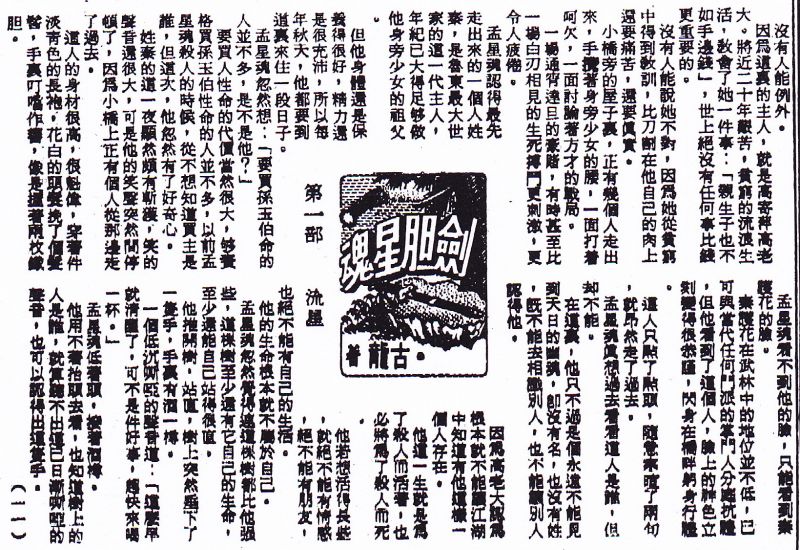 沒有人能例外。
因爲這裏的主人，就是高寄萍高老
大。將近二十年艱苦，貧窮的流浪生
活，教會了她一件事：「親生子也不
如手邊錢」，世上絕沒有任何事比錢
更重要的。
沒有人能說她不對，因爲她從貧窮
中得到教訓，比刀割在他自己的肉上
還要痛苦，還要眞實。
小橋旁的屋子裏，正有幾個人走出
來，手摟著身旁少女的腰，一面打着
呵欠，一面討論著方才的戰局。
一場通宵達旦的豪賭，有時甚至比
一場白刃相見的生死搏鬥更刺激，更
令人疲倦。
孟星魂認得最先
走出來的一個人姓
秦，是魯東最大世
家的這一代主人，
年紀已大得足够做
他身旁少女的祖父
。
但他身體還是保
養得很好，精力還
是很充沛，所以每
年秋天，他都要到
這裏來住一段日子。
孟星魂忽然想：「要買孫玉伯命的
人並不多，是不是他？」
要買人性命的代價當然很大，够資
格買孫玉伯性命的人並不多，以前孟
星魂殺人的時候，從不想知道買主是
誰，但這次，他忽然有了好奇心。
姓秦的這一夜顯然頗有斬獲，笑的
聲音還很大，可是他的笑聲突然間停
頓了，因爲小橋上正有個人從那邊走
了過去。
這人的身材很高，很魁偉，穿著件
淡靑色的長袍，花白的頭髮挽了個髮
髻，手裏叮噹作響，像是握著兩枚鐵
胆。
劍胆星魂
古龍•著
第一部　流星
孟星魂看不到他的臉，只能看到秦
護花的臉。
秦護花在武林中的地位並不低，已
可與當代任何門派的掌門人分庭抗禮
，但他看到了這個人，臉上的神色立
刻變得很恭謹，閃身在橋畔躬身行禮
。
這人只點了點頭，隨意寒喧了兩句
，就昂然走了過去。
孟星魂眞想過去看看這人是誰，但
却不能。
在這裏，他只不過是個永遠不能見
到天日的幽魂，卽沒有名，也沒有姓
，旣不能去相識別人，也不能讓別人
認得他。
因爲高老大認爲
根本就不能讓江湖
中知道有他這樣一
個人存在。
他這一生就是爲
了殺人而活著，也
必將爲了殺人而死
。
他若想活得長些
，就絕不能有情感
，絕不能有朋友，
也絕不能有自己的生活。
他的生命根本就不屬於自己。
孟星魂忽然覺得連這棵樹都比他強
些，這棵樹至少還有它自己的生命，
至少還能自己站得很直。
他推開樹，站直，樹上突然垂下了
一隻手，手裏有酒一樽。
一個低沉嘶啞的聲音道：「這麼早
就清醒了，可不是件好事，趕快來喝
一杯。」
孟星魂低著頭，接著酒樽。
他用不著抬頭去看，也知道樹上的
人是誰，就算聽不出這已日漸嘶啞的
聲音，也可以認得出這隻手。
（一一）